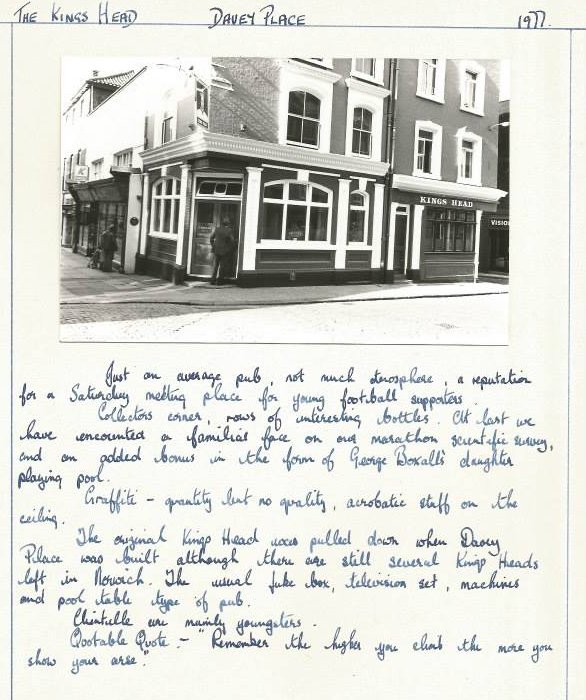 THE KINGS HEAD DAVEY PLACE 1977.
KINGS HEAD
VISION
Just an average pub, not much atmosphere, a reputation
for a Saturday meeting place for young football supporters.
Collectors corner, rows of interesting bottles. At last we
have encountered a familiar face on our marathon scientific survey,
and an added bonus in the form of George Boxall's daughter
playing pool.
Graffiti - quantity but no quality, acrobatic stuff on the
ceiling.
The original Kings Head was pulled down when Davey
Place was built although there are still several Kings Heads
left in Norwich. The usual juke box, television set, machines
and pool table type of pub.
Clientelle are mainly youngsters.
Qootable Quote:- "Remember the higher you climb the more you
show your arse."